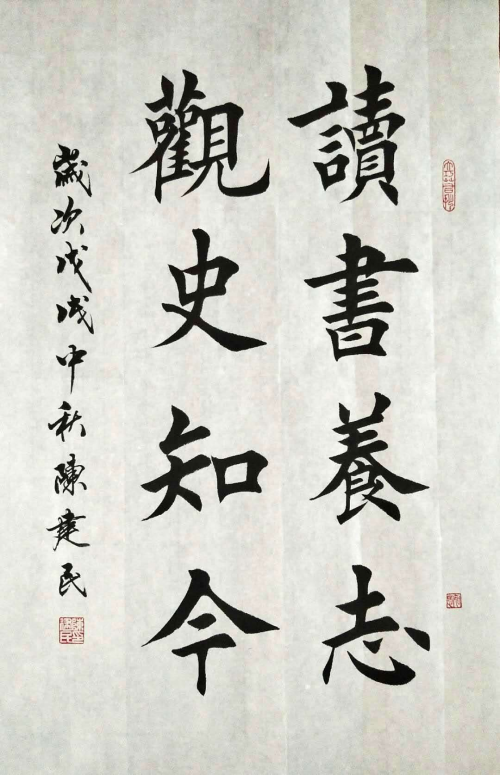 讀書養志
觀史知今
歲次戊戌中秋陳建民